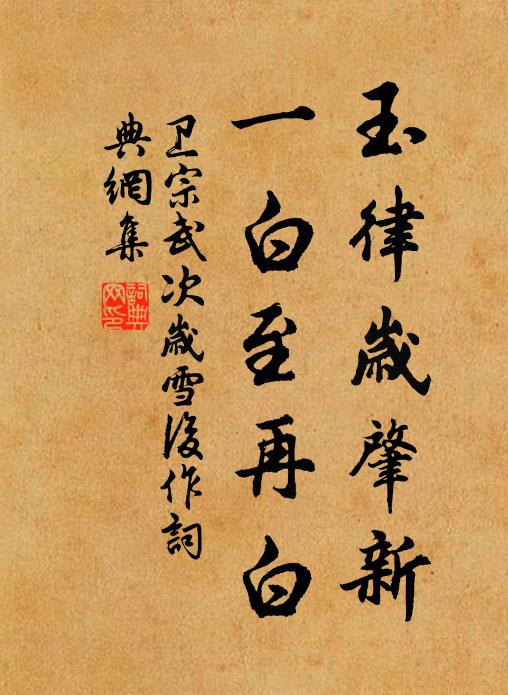 玉律歲肇新
一白至再白
卫宗武次歲雪後作詞
典網集
詞典
网印